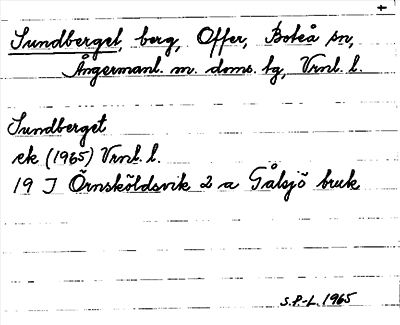 +
Sundberget, berg, Offer, Boteå sn,
Ångermanl. m. doms. tg, Vrnl. l.
Sundberget
ek (1965) Vrnl. l.
19 J Örnsköldsvik 2 a Gålsjö bruk
S.P-L. 1965